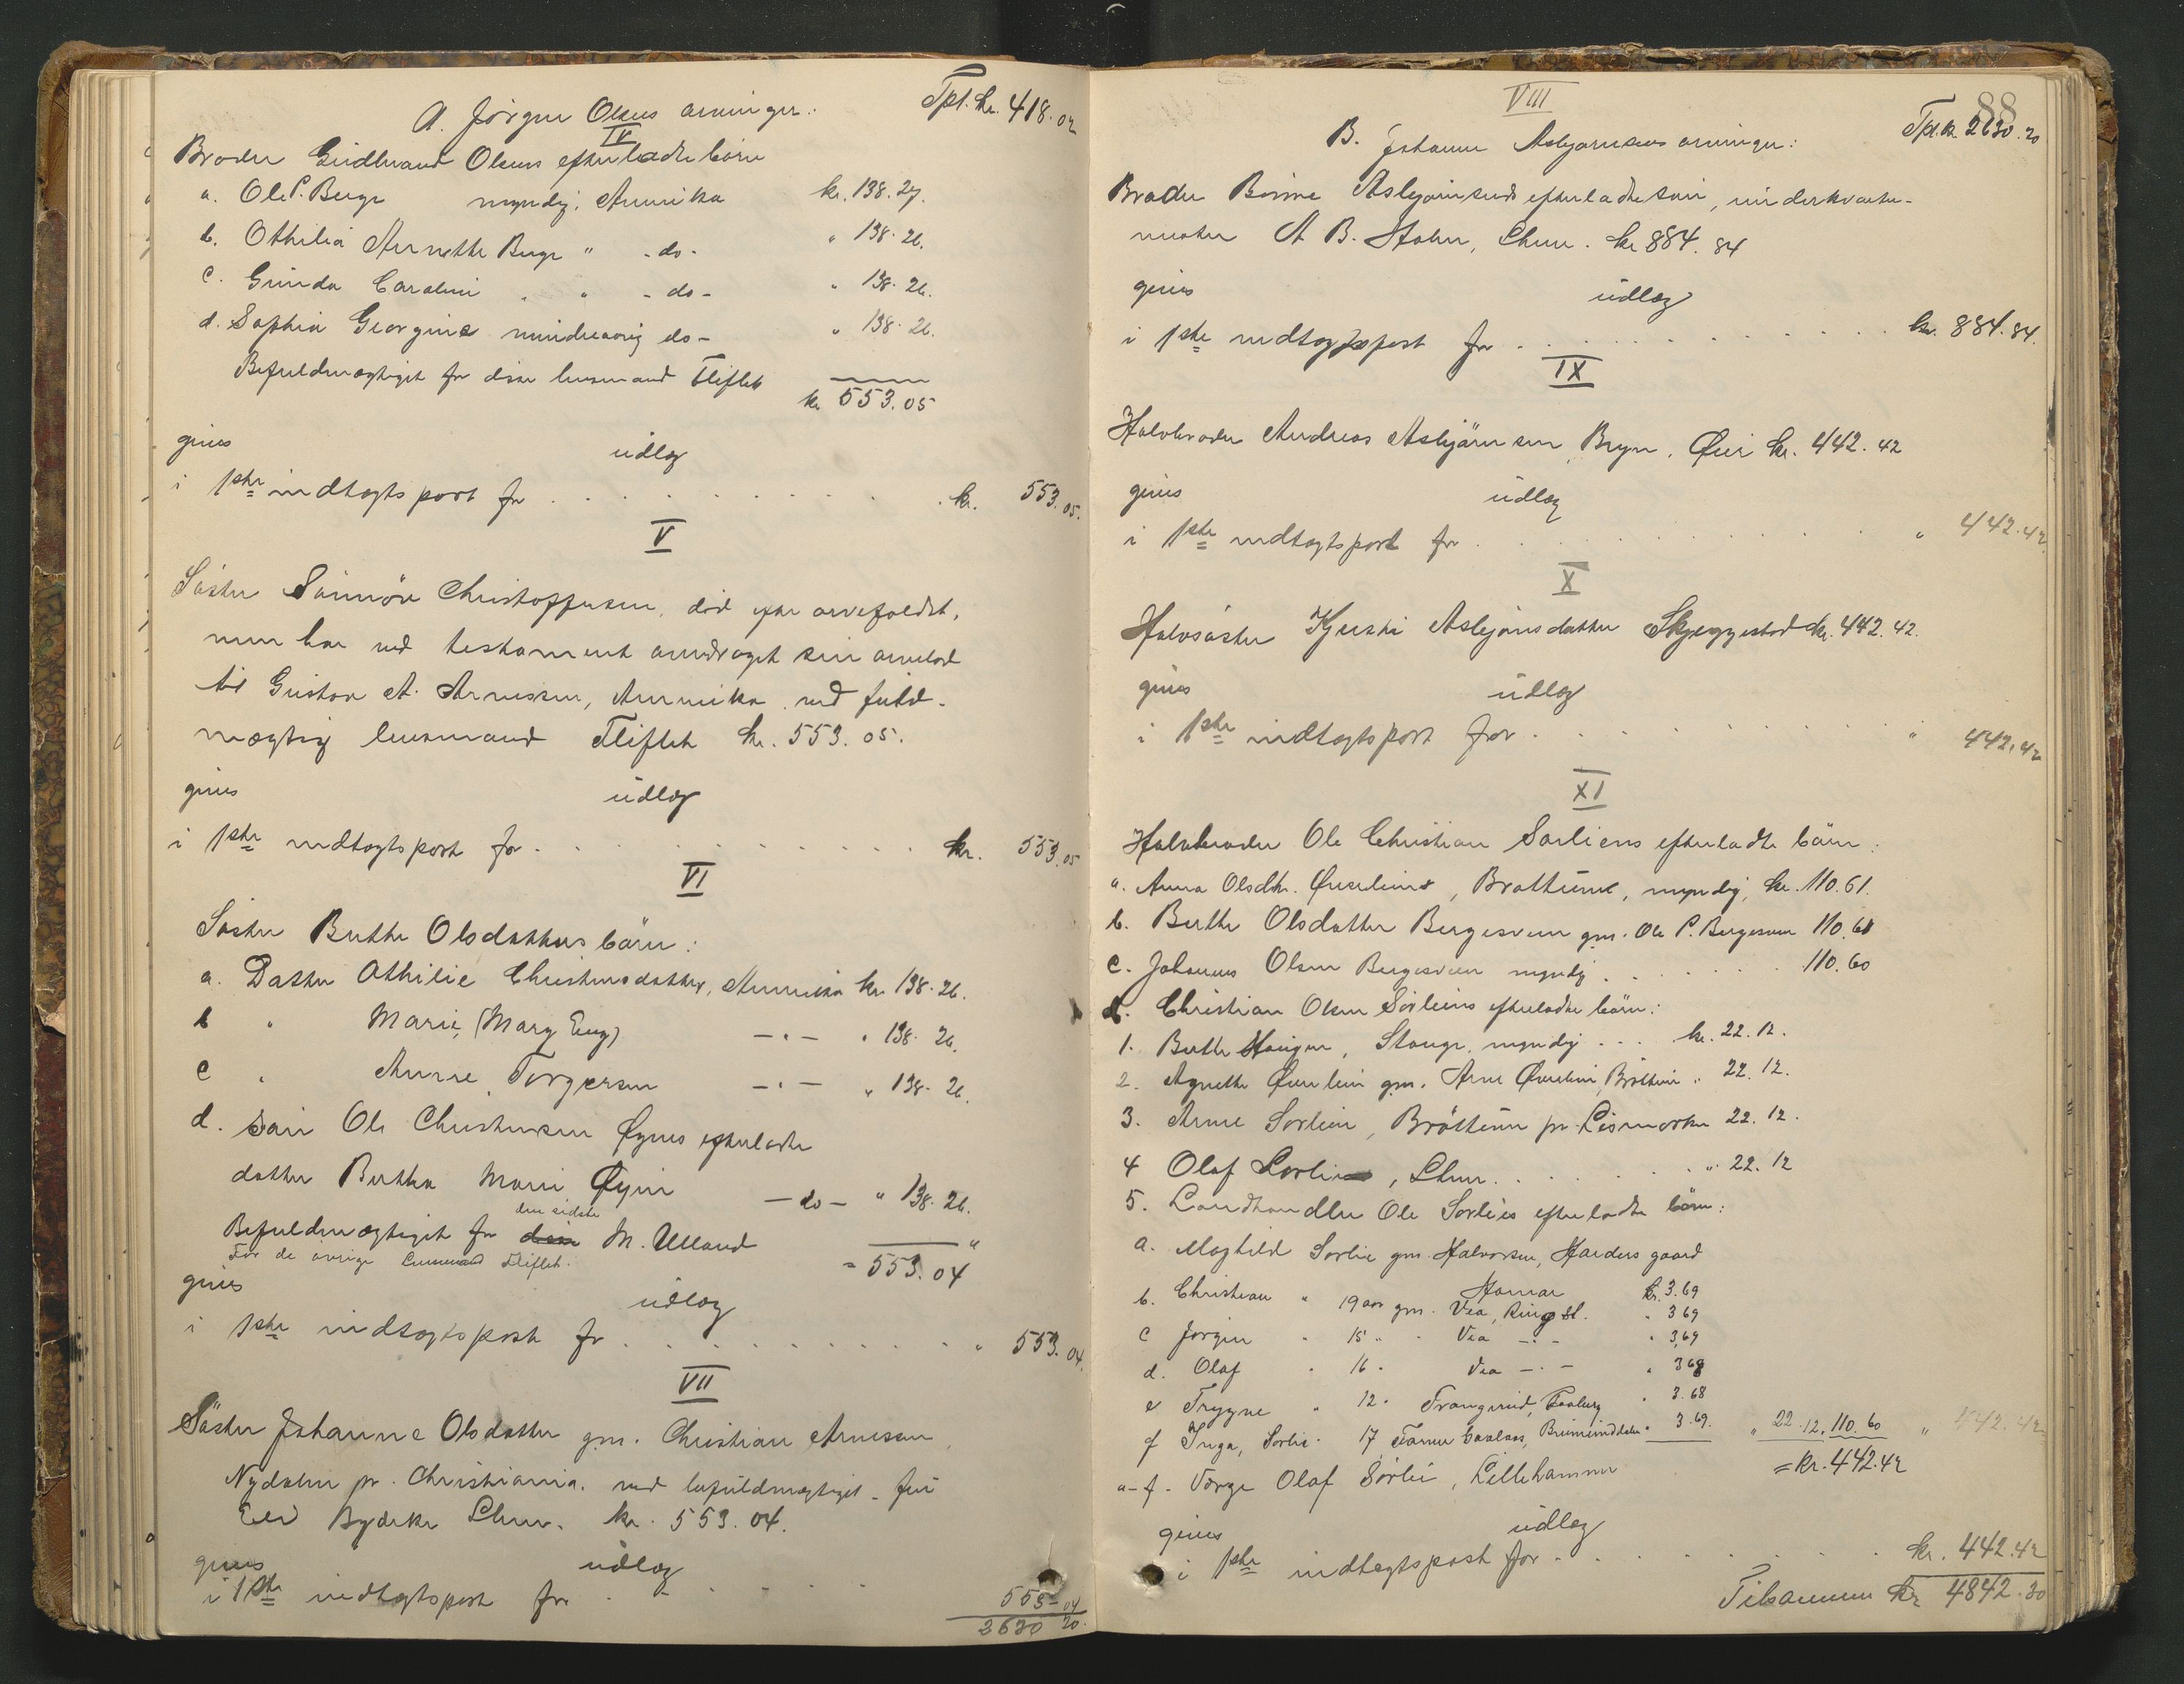 A. Jörgen Olsens arvinger. Tpt. kr. 418.02
IV
Broder Gudbrand Olsens efterladte börn
a. Ole P. Berge myndig, Amerika kr. 138.27.
b. Othilia Annette Berge " -do- " 138.26.
c. Gunda Caroline " " -do- " 138.26.
d. Sophia Georgine mindreaarig do- " 138.26.
Befuldmægtiget for disse lensmand Fliflet
kr. 553.05
gives udlæg
i 1ste indtægtspost for . . . kr. 553.05.
V
Söster Sönnöve Christoffersen, död efter arvefaldet,
men har ved testament overdraget sin arvelod
til Gustav A. Arnesen, Amerika ved fuld-
mægtig lensmand Fliflet kr. 553.05.
gives udlæg
i 1ste indtægtspost for . . . kr. 553.05
VI
Söster Berthe Olsdatters börn:
a. Datter Othilie Christensdatter, Amerika kr. 138.26.
b " Marie, (Mary Eng) - " - " 138.26.
c " Anne Torgersen - " - " 138.26.
d. sön Ole Christensen Öyens efterladte
datter Berthe Marie Öyen -do- " 138.26.
den sidste
Befuldmægtiget for M. Ulland
For de övrige Lensmand Fliflet. = 553.04
gives udlæg
i 1ste indtægtspost for . . . " 553.04.
VII
Söster Johanne Olsdatter gm. Christian Arnesen,
Nydalen pr. Christiania, med befuldmægtiget
Lhmr. kr. 553.04.
gives udlæg
i 1ste indtægtspost for . . . 553-04
2630 20.
VIII 88
B. Johanne Asbjörnsens arvinger: Tpt. kr. 2630.20
Broder Asbjörnsens efterladte sön, underkvarter-
mester A B. Holen, Lhmr. kr 884.84
gives udlæg
i 1ste indtægtspost for . . . kr. 884.84.
IX
Halvbroder Andreas Asbjörnsen Bryn, Öier kr. 442.42
gives udlæg
i 1ste indtægtspost for . . . " 442.42.
X
Halvsöster Kjersti Asbjörnsdatter Skjeggestad kr. 442.42.
gives udlæg
i 1ste indtægtspost for . . . " 442.42
XI
Halvbroder Ole Christian Sörliens efterladte börn:
a. Anna Olsdtr. Överlien, Bröttum, myndig, kr. 110.61.
b. Berthe Olsdatter Bergesveen gm. Ole P. Bergesveen 110.61
c. Johannes Olsen Bergesveen myndig . . . 110.60
d. Christian Olsen Sörliens efterladte börn:
1. Berthe Haugen, Stange, myndig . . . kr. 22.12.
2. Agnethe Överlien gm. Arne Överlien, Bröttum " 22.12.
3. Arne Sörlien, Bröttum pr. Lismarken 22.12.
4 Olaf Sorlie, Lhmr. . . . " 22.12
5. Landhandler Ole Sörlies efterladte börn:
a. Maghild Sorlie gm. Halvorsen, gaard
Hamar kr. 3.69
b. Christian " 19 aar gm. Vea, Ringsk. " 3 69
c Jörgen " 15 " " Vea - " - " 3,69
d. Olaf " 16 " Vea - " - " 3 68
e Trygve " 12 " Faaberg " 3.68
f Inga, Sorlie " 17 " 3.69. " 22.12, 110.60 " 442.42
a-f. Værge Olaf Sörlie, Lillehammer = kr. 442.42
gives udlæg
i 1ste indtægtspost for . . . kr. 442.42
Tilsammen kr 4842.30